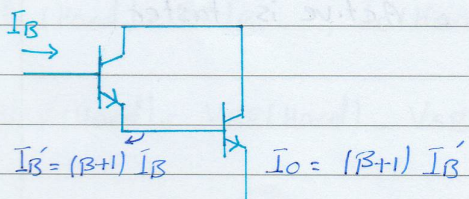 I_B
I_B' = (β+1) I_B
I_O = (β+1) I_B'